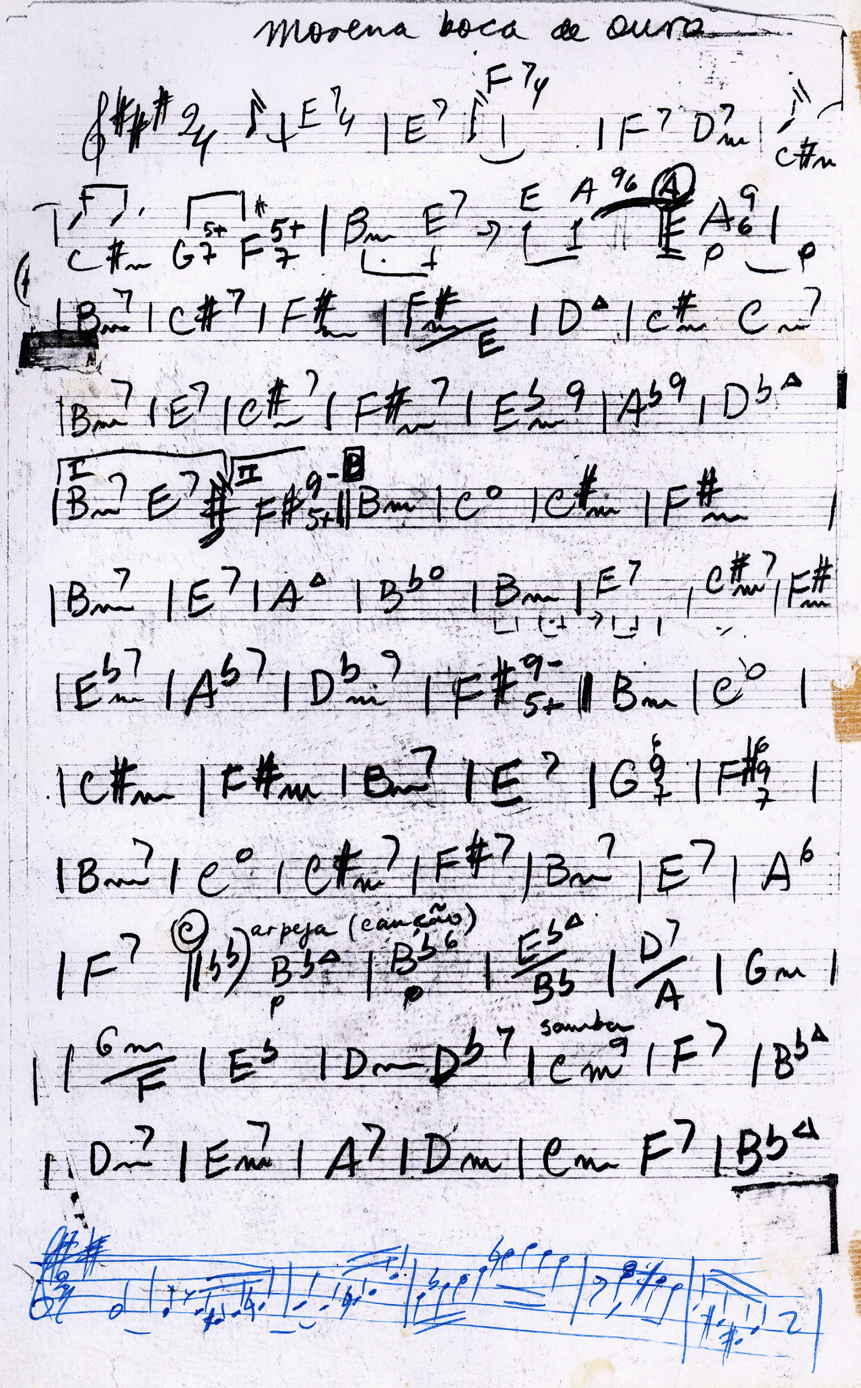 morena boca de ouro
2/4 | E7 4 | E7 F7 4 | F7 Dm7 | C#m
C#m G7 5+ F7 5+ | Bm E7 E A 9 6 A E A 9 6 |
| Bm7 | C#7 | F#m | F#m/E | DΔ | C#m Cm7
| Bm7 | E7 | C#m7 | F#m7 | Ebm9 | Ab9 | DbΔ
I II B
| Bm7 E7 F# 9- 5+ || Bm | C° | C#m | F#m |
| Bm7 | E7 | AΔ | Bb° | Bm | E7 | C#m7 | F#m
| Ebm7 | Ab7 | Dbm7 | F# 9- 5+ || Bm | C° |
| C#m | F#m | Bm7 | E7 | G 6 9 7 | F# 6 9 7 |
| Bm7 | C° | C#m7 | F#7 | Bm7 | E7 | A6
C arpeja (canção)
| F7 || bb) BbΔ | Bb6 | EbΔ/Bb | D7/A | Gm |
samba
| | Gm/F | Eb | Dm Db7 | Cm9 | F7 | BbΔ
| Dm7 | Em7 | A7 | Dm | Cm F7 | BbΔ